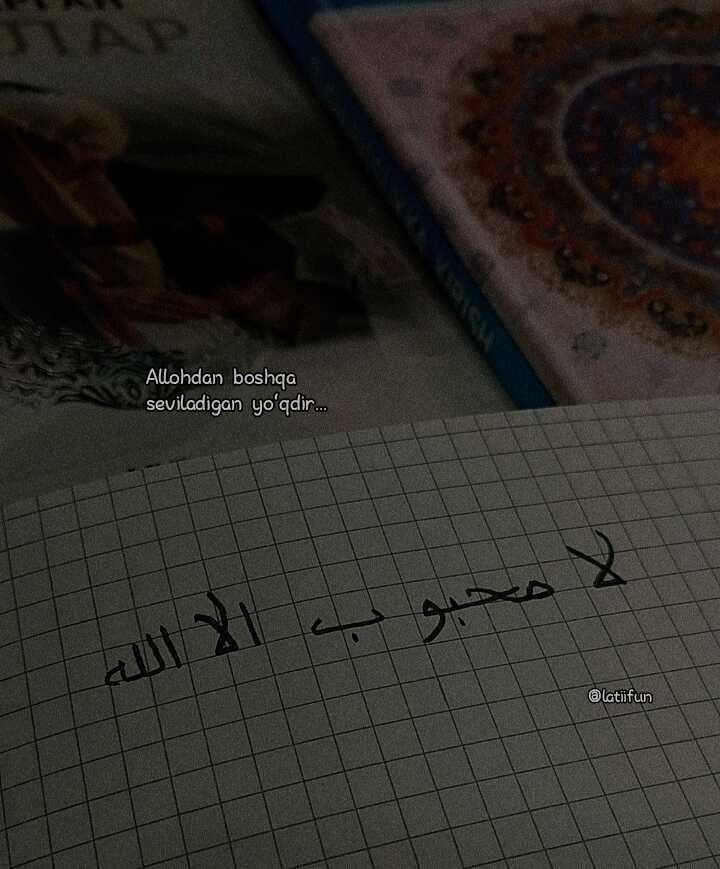 ЛАР
KIRISH
Allohdan boshqa
seviladigan yo'qdir...
لا محبوب الا الله
@latiifun